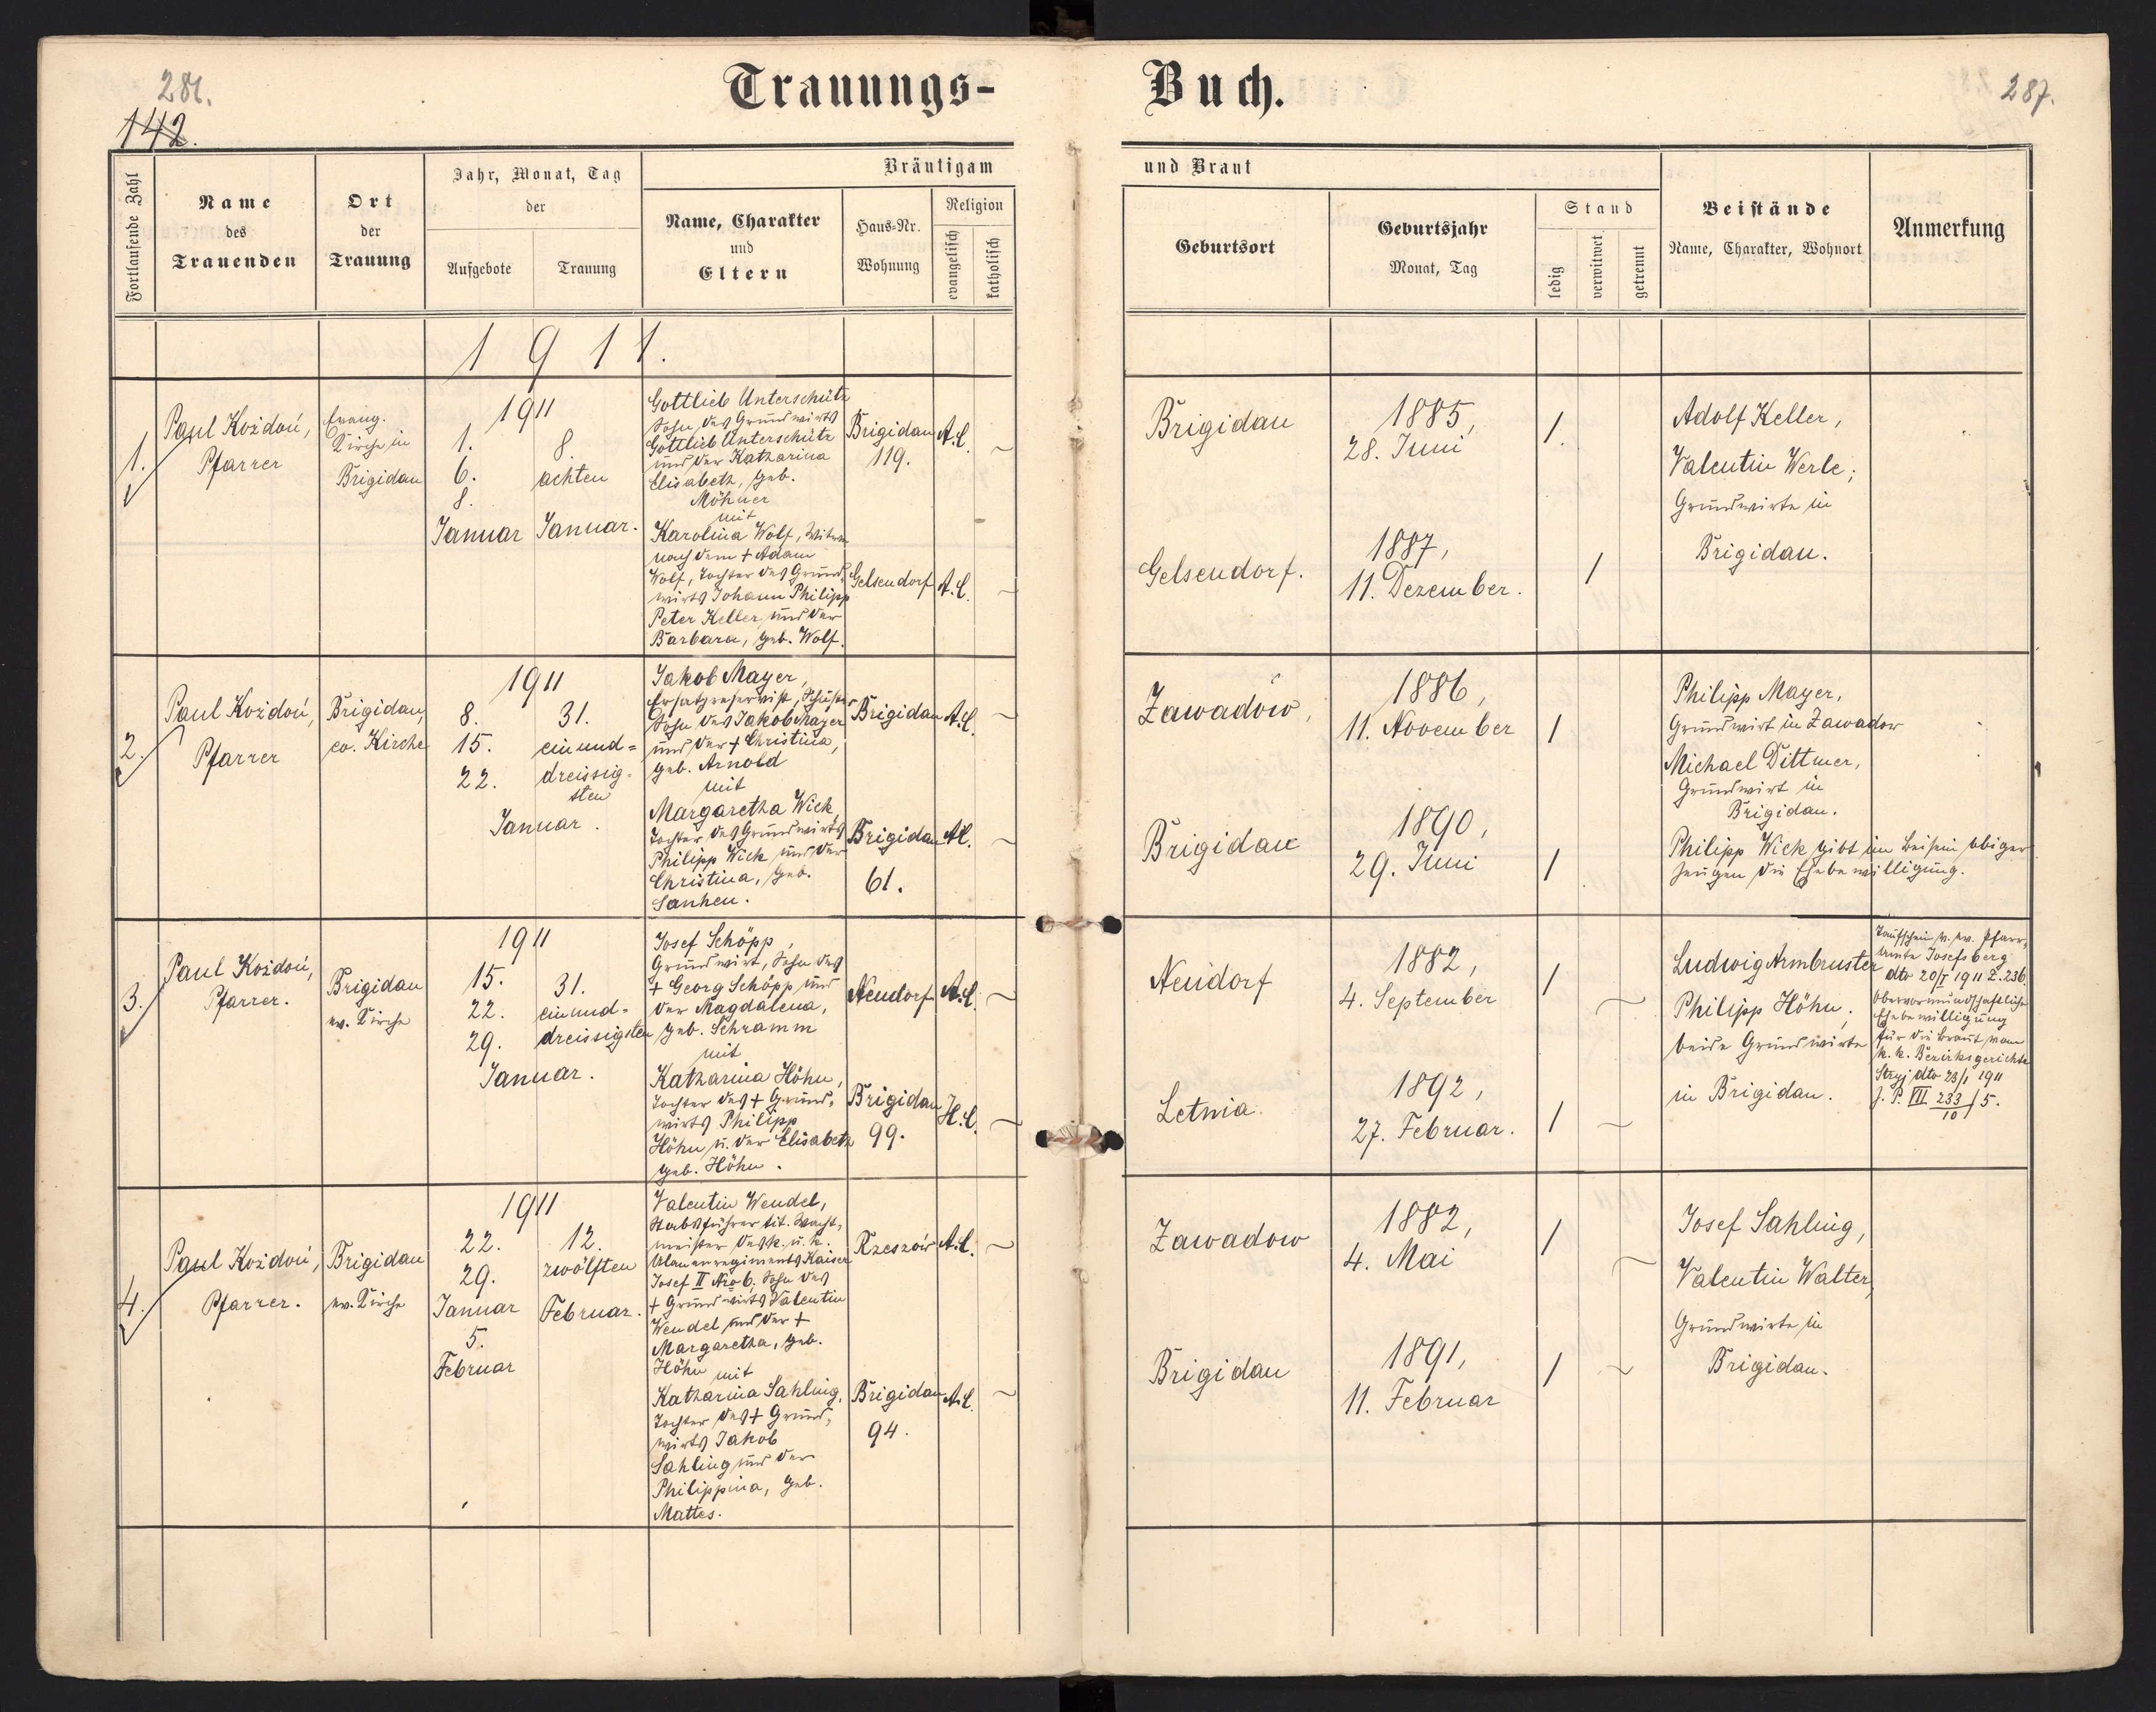 281.
142.
Trauungs-
Buch.
287.
Fortlaufende Zahl
Name
des
Trauenden
Ort
der
Trauung
Jahr, Monat, Tag
der
Aufgebote
Trauung
Bräutigam
Name, Charakter
und
Eltern
Haus-Nr.
Wohnung
Religion
evangelisch
katholisch
und Braut
Geburtsort
Geburtsjahr
Monat, Tag
Stand
ledig
verwitwet
getrennt
Beistände
Name, Charakter, Wohnort
Anmerkung
1911.
1.
Paul Kożdoń,
Pfarrer
Evang.
Kirche in
Brigidau
1911
1.
6.
8.
Januar
8.
achten
Januar.
Gottlieb Unterschütz
Sohn des Grundwirts
Gottlieb Unterschütz
und der Katharina
Elisabeth, geb.
Möhner
mit
Karolina Wolf, Witwe
nach dem + Adam
Wolf, Tochter des Grund-
wirts Johann Philipp
Peter Keller und der
Barbara, geb. Wolf.
Brigidau
119.
A.C.
Gelsendorf
A.C.
Brigidau
1885,
28. Juni
1.
Gelsendorf.
1887,
11. Dezember.
1
Adolf Keller,
Valentin Werle;
Grundwirte in
Brigidau.
2.
Paul Kożdoń,
Pfarrer
Brigidau,
ev. Kirche
1911
8.
15.
22.
31.
einund=
dreissig=
sten
Januar.
Jakob Mayer,
Ersatzreservist, Schuster
Sohn des Jakob Mayer
und der + Christina,
geb. Arnold
mit
Margaretha Wick,
Tochter des Grundwirts
Philipp Wick und der
Christina, geb.
Manhen.
Brigidau
A.C.
Brigidau
61.
A.C.
Zawadów,
1886,
11. November
1
Brigidau
1890,
29. Juni
1
Philipp Mayer,
Grundwirt in Zawadow
Michael Dittmer,
Grundwirt in
Brigidau.
Philipp Wick gibt im Beisein obiger
Zeugen die Ehebewilligung.
3.
Paul Kożdoń,
Pfarrer.
Brigidau
ev. Kirche
1911
15.
22.
29.
31.
einund=
dreissigsten
Januar.
Josef Schöpp,
Grundwirt, Sohn des
+ Georg Schöpp und
der Magdalena,
geb. Schramm
mit
Katharina Höhn,
Tochter des + Grund-
wirts Philipp
Höhn u. der Elisabeth
geb. Höhn.
Neudorf
A.C.
Brigidau
99.
H.C.
Neudorf
1882,
4. September
1
Letnia.
1892,
27. Februar.
1
Ludwig Armbruster
Philipp Höhn,
beide Grundwirte
in Brigidau.
Taufschein v. ev. Pfarr-
amte Josefsberg
dto 20/I 1911 Z. 236.
Obervormundschaftliche
Ehebewilligung
für die Braut vom
k. k. Bezirksgerichte
Stryj dto 23/1 1911
J. P. VII 233/10 / 5.
4.
Paul Kożdoń,
Pfarrer.
Brigidau
ev. Kirche
1911
22.
29.
Januar
5.
Februar
12.
zwölften
Februar.
Valentin Wendel,
Stabsführer tit. Wacht-
meister des k. u. k.
Ulanenregiments Kaiser
Josef II Nro 6, Sohn des
+ Grundwirts Valentin
Wendel und der +
Margaretha, geb.
Höhn mit
Katharina Sahling,
Tochter des + Grund-
wirts Jakob
Sahling und der
Philippina, geb.
Mattes.
Rzeszów
A.C.
Brigidau
94.
A.C.
Zawadow
1882,
4. Mai
1
Brigidau
1891,
11. Februar
1
Josef Sahling,
Valentin Walter,
Grundwirte in
Brigidau.